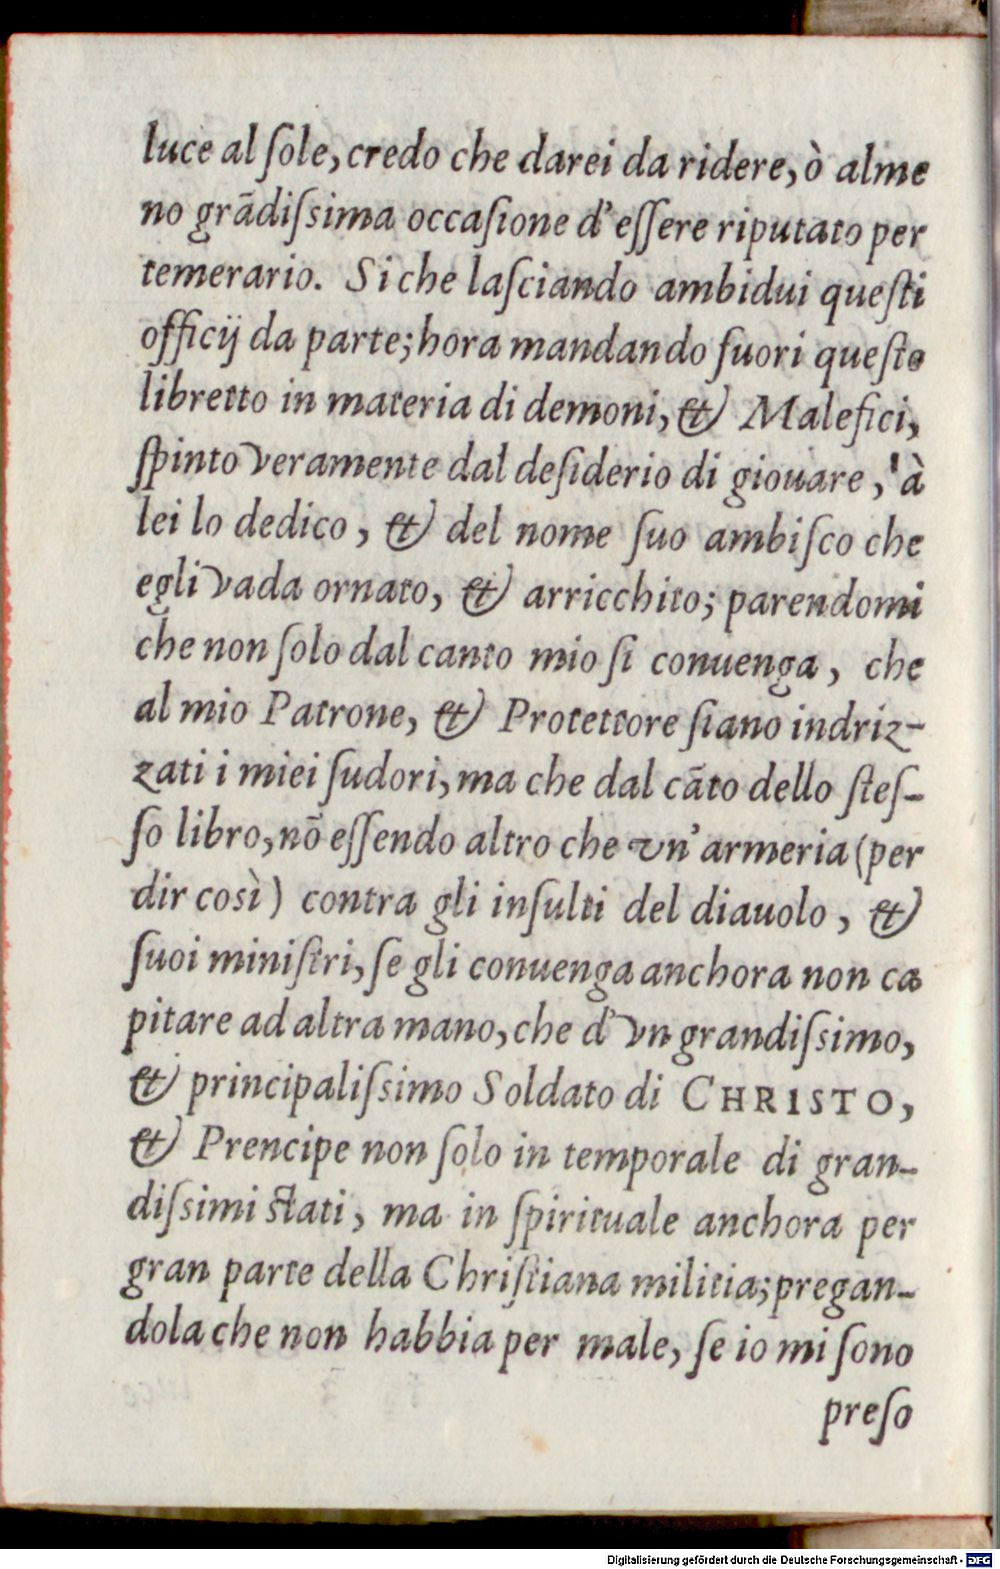 luce al ſole, credo che darei da ridere, ò alme
no grãdiſsima occaſione d'eſſere riputato per
temerario. Si che laſciando ambidui queſti
officij da parte; hora mandando fuori queſto
libretto in materia di demoni, & Malefici,
ſpinto veramente dal deſiderio di giouare, 'à
lei lo dedico, & del nome ſuo ambiſco che
egli vada ornato, & arricchito; parendomi
che non ſolo dal canto mio ſi conuenga, che
al mio Patrone, & Protettore ſiano indriz-
zati i miei ſudori, ma che dal cãto dello ſteſ-
ſo libro, nõ eſſendo altro che vn' armeria (per
dir così) contra gli inſulti del diauolo, &
ſuoi miniſtri, ſe gli conuenga anchora non ca
pitare ad altra mano, che d'vn grandiſsimo,
& principaliſsimo Soldato di CHRISTO,
& Prencipe non ſolo in temporale di gran-
diſsimi ſtati, ma in ſpirituale anchora per
gran parte della Chriſtiana militia; pregan-
dola che non habbia per male, ſe io mi ſono
preſo
Digitalisierung gefördert durch die Deutsche Forschungsgemeinschaft - DFG